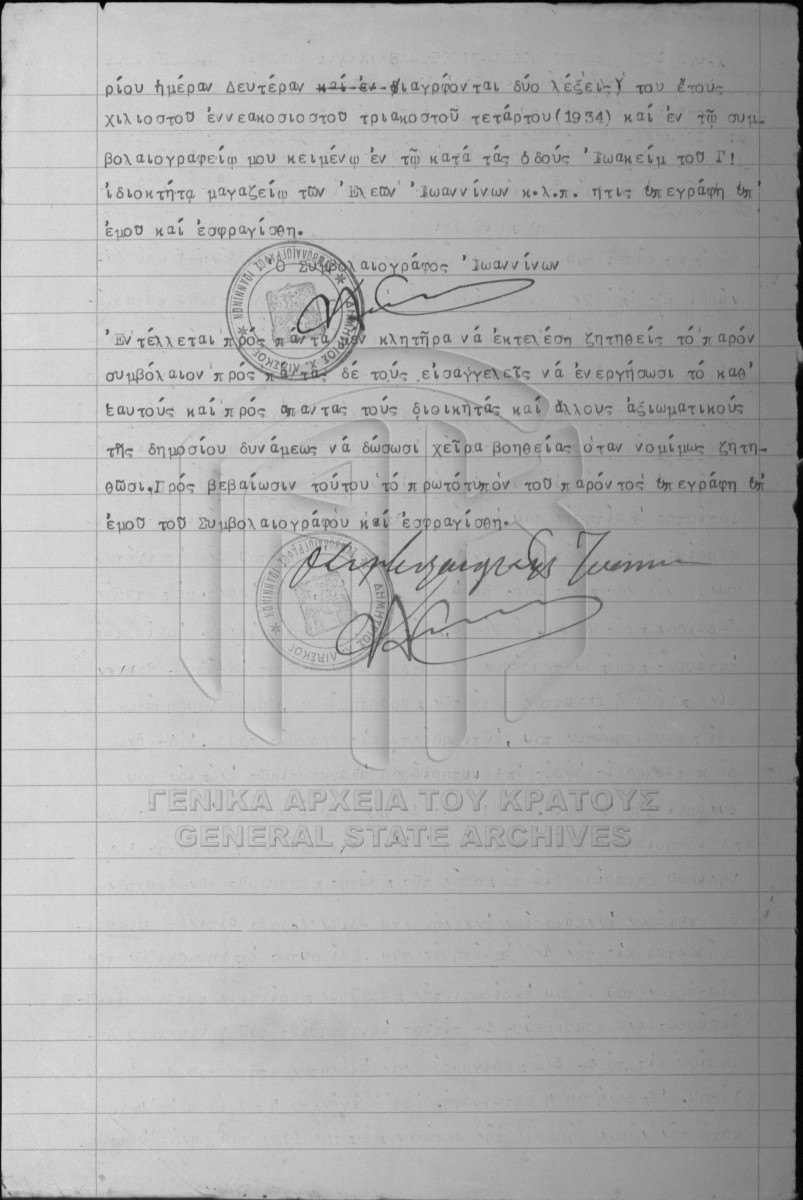 ρίου ἡμέραν Δευτέραν καί ἐν (διαγράφονται δύο λέξεις) του ἔτους
χιλιοστοῦ ἐννεακοσιοστοῦ τριακοστοῦ τετάρτου(1934) καί ἐν τῷ συμ-
βολαιογραφείῳ μου κειμένῳ ἐν τῷ κατά τάς ὁδούς Ἰωακείμ τοῦ Γ!
ἰδιοκτήτῳ μαγαζείῳ τῶν Ἐλεῶν Ἰωαννίνων κ.λ.π. ἥτις ὑπεγράφη ὑπ'
ἐμοῦ καί ἐσφραγίσθη.
Ὁ Συμβολαιογράφος Ἰωαννίνων
Ἐντέλλεται πρός πάντα τόν κλητῆρα νά ἐκτελέσῃ ζητηθείς τό παρόν
συμβόλαιον πρός πάντας δέ τούς εἰσαγγελεῖς νά ἐνεργήσωσι τό καθ'
ἑαυτούς καί πρός ἅπαντας τούς διοικητάς καί ἄλλους ἀξιωματικούς
τῆς δημοσίου δυνάμεως νά δώσωσι χεῖρα βοηθείας ὅταν νομίμως ζητη-
θῶσι. Πρός βεβαίωσιν τούτου τό πρωτότυπόν τοῦ παρόντος ὑπεγράφη ὑπ'
ἐμοῦ τοῦ Συμβολαιογράφου καί ἐσφραγίσθη.
ΓΕΝΙΚΑ ΑΡΧΕΙΑ ΤΟΥ ΚΡΑΤΟΥΣ
GENERAL STATE ARCHIVES